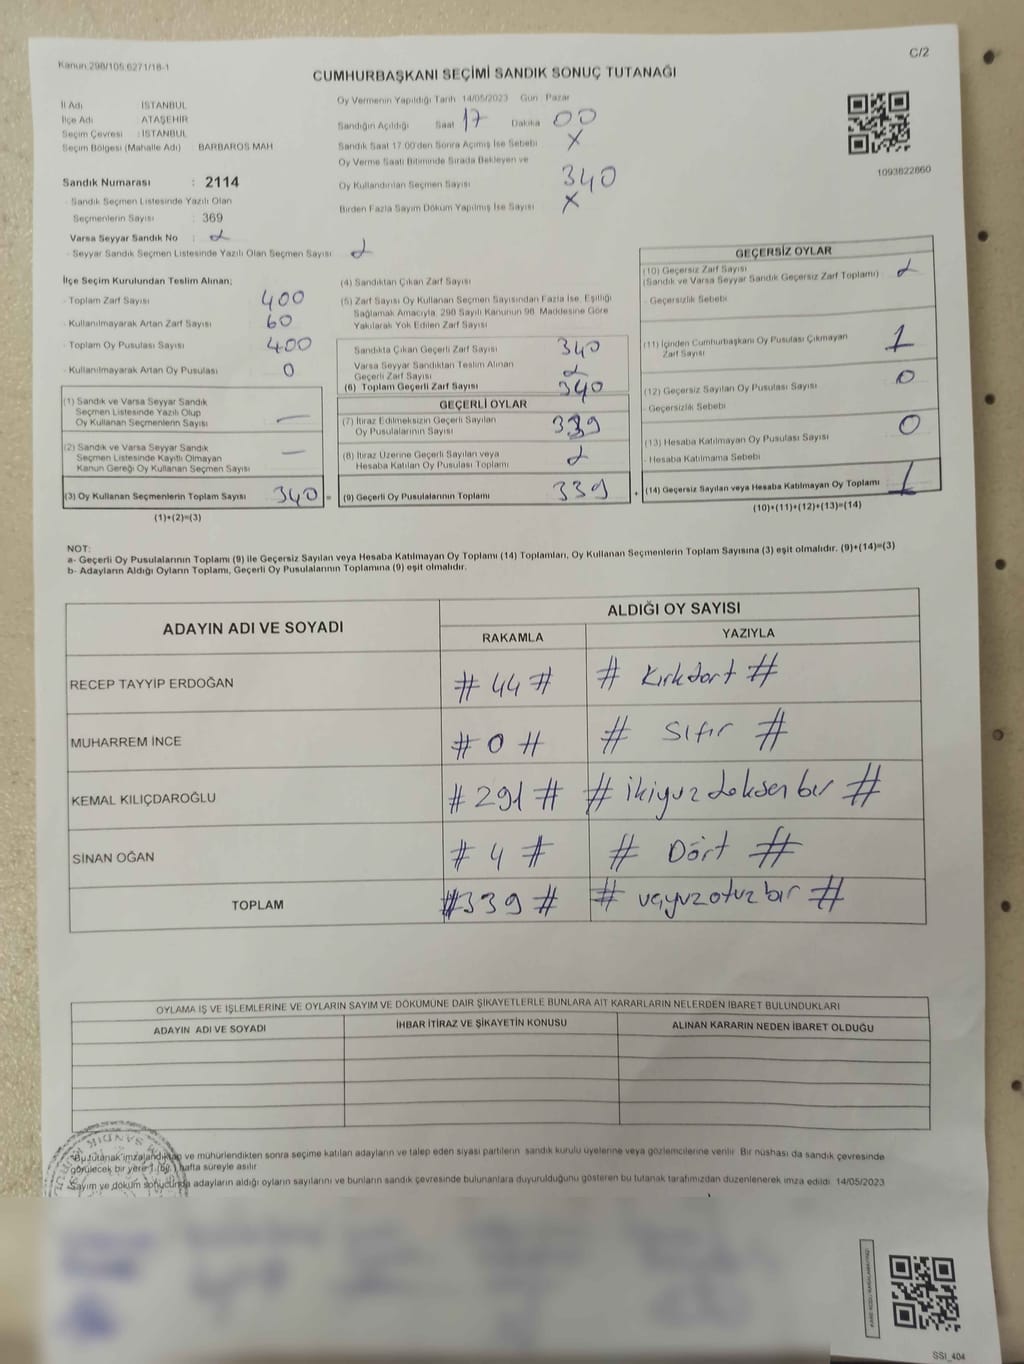 Kanun:298/105.6271/18-1
C/2
CUMHURBAŞKANI SEÇİMİ SANDIK SONUÇ TUTANAĞI
İl Adı İSTANBUL
İlçe Adı ATAŞEHİR
Seçim Çevresi : İSTANBUL
Seçim Bölgesi (Mahalle Adı) BARBAROS MAH
Sandık Numarası : 2114
- Sandık Seçmen Listesinde Yazılı Olan
Seçmenlerin Sayısı : 369
Varsa Seyyar Sandık No :
- Seyyar Sandık Seçmen Listesinde Yazılı Olan Seçmen Sayısı
Oy Vermenin Yapıldığı Tarih 14/05/2023 Gün : Pazar
Sandığın Açıldığı Saat 17 Dakika 00
Sandık Saat 17.00'den Sonra Açılmış İse Sebebi X
Oy Verme Saati Bitiminde Sırada Bekleyen ve
Oy Kullandırılan Seçmen Sayısı 340
Birden Fazla Sayım Döküm Yapılmış İse Sayısı X
1093622860
İlçe Seçim Kurulundan Teslim Alınan;
- Toplam Zarf Sayısı 400
- Kullanılmayarak Artan Zarf Sayısı 60
- Toplam Oy Pusulası Sayısı 400
- Kullanılmayarak Artan Oy Pusulası 0
(1) Sandık ve Varsa Seyyar Sandık
Seçmen Listesinde Yazılı Olup
Oy Kullanan Seçmenlerin Sayısı —
(2) Sandık ve Varsa Seyyar Sandık
Seçmen Listesinde Kayıtlı Olmayan
Kanun Gereği Oy Kullanan Seçmen Sayısı —
(3) Oy Kullanan Seçmenlerin Toplam Sayısı 340 =
(1)+(2)=(3)
(4) Sandıktan Çıkan Zarf Sayısı
(5) Zarf Sayısı Oy Kullanan Seçmen Sayısından Fazla İse, Eşitliği
Sağlamak Amacıyla, 298 Sayılı Kanunun 98. Maddesine Göre
Yakılarak Yok Edilen Zarf Sayısı
Sandıkta Çıkan Geçerli Zarf Sayısı 340
Varsa Seyyar Sandıktan Teslim Alınan
Geçerli Zarf Sayısı
(6) Toplam Geçerli Zarf Sayısı 340
GEÇERLİ OYLAR
(7) İtiraz Edilmeksizin Geçerli Sayılan
Oy Pusulalarının Sayısı 339
(8) İtiraz Üzerine Geçerli Sayılan veya
Hesaba Katılan Oy Pusulası Toplamı
(9) Geçerli Oy Pusulalarının Toplamı 339 +
GEÇERSİZ OYLAR
(10) Geçersiz Zarf Sayısı
(Sandık ve Varsa Seyyar Sandık Geçersiz Zarf Toplamı)
- Geçersizlik Sebebi
(11) İçinden Cumhurbaşkanı Oy Pusulası Çıkmayan
Zarf Sayısı 1
(12) Geçersiz Sayılan Oy Pusulası Sayısı 0
- Geçersizlik Sebebi
(13) Hesaba Katılmayan Oy Pusulası Sayısı 0
- Hesaba Katılmama Sebebi
(14) Geçersiz Sayılan veya Hesaba Katılmayan Oy Toplamı 1
(10)+(11)+(12)+(13)=(14)
NOT:
a- Geçerli Oy Pusulalarının Toplamı (9) ile Geçersiz Sayılan veya Hesaba Katılmayan Oy Toplamı (14) Toplamları, Oy Kullanan Seçmenlerin Toplam Sayısına (3) eşit olmalıdır. (9)+(14)=(3)
b- Adayların Aldığı Oyların Toplamı, Geçerli Oy Pusulalarının Toplamına (9) eşit olmalıdır.
ADAYIN ADI VE SOYADI ALDIĞI OY SAYISI
RAKAMLA YAZIYLA
RECEP TAYYİP ERDOĞAN # 44 # # Kırkdört #
MUHARREM İNCE # 0 # # Sıfır #
KEMAL KILIÇDAROĞLU # 291 # # ikiyuzdoksanbir #
SİNAN OĞAN # 4 # # Dört #
TOPLAM #339 # # üçyuzotuzbir #
OYLAMA İŞ VE İŞLEMLERİNE VE OYLARIN SAYIM VE DÖKÜMÜNE DAİR ŞİKAYETLERLE BUNLARA AİT KARARLARIN NELERDEN İBARET BULUNDUKLARI
ADAYIN ADI VE SOYADI İHBAR İTİRAZ VE ŞİKAYETİN KONUSU ALINAN KARARIN NEDEN İBARET OLDUĞU
Bu tutanak imzalandıktan ve mühürlendikten sonra seçime katılan adayların ve talep eden siyasi partilerin sandık kurulu üyelerine veya gözlemcilerine verilir. Bir nüshası da sandık çevresinde
görülecek bir yere 1 (bir) hafta süreyle asılır.
Sayım ve döküm sonucunda adayların aldığı oyların sayılarını ve bunların sandık çevresinde bulunanlara duyurulduğunu gösteren bu tutanak tarafımızdan düzenlenerek imza edildi. 14/05/2023
SSI_404